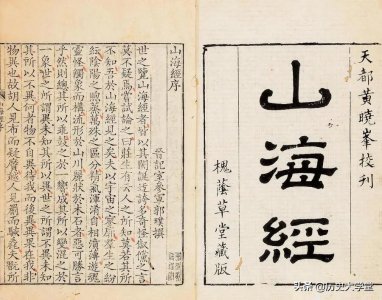 天都黃曉峯校刊
山海經
槐蔭草堂藏版
山海經序
晉記室參軍郭璞撰
世之覽山海經者皆以其閎誕迂誇多奇怪俶儻之言
莫不疑焉嘗試論之曰莊生有云人之所知莫若其所
不知吾於山海經見之矣夫以宇宙之寥廓群生之紛
紜陰陽之煦蒸萬殊之區分精氣渾淆自相濆薄遊魂
靈怪觸象而構流形於山川麗狀於木石者惡可勝言
乎然則總其所以乖鼓之於一響成其所以變混之於
一象世之所謂異未知其所以異世之所謂不異未知
其所以不異何者物不自異待我而後異異果在我非
物異也故胡人見布而疑黂越人見罽而駭毳夫翫所
头条 @历史大学堂